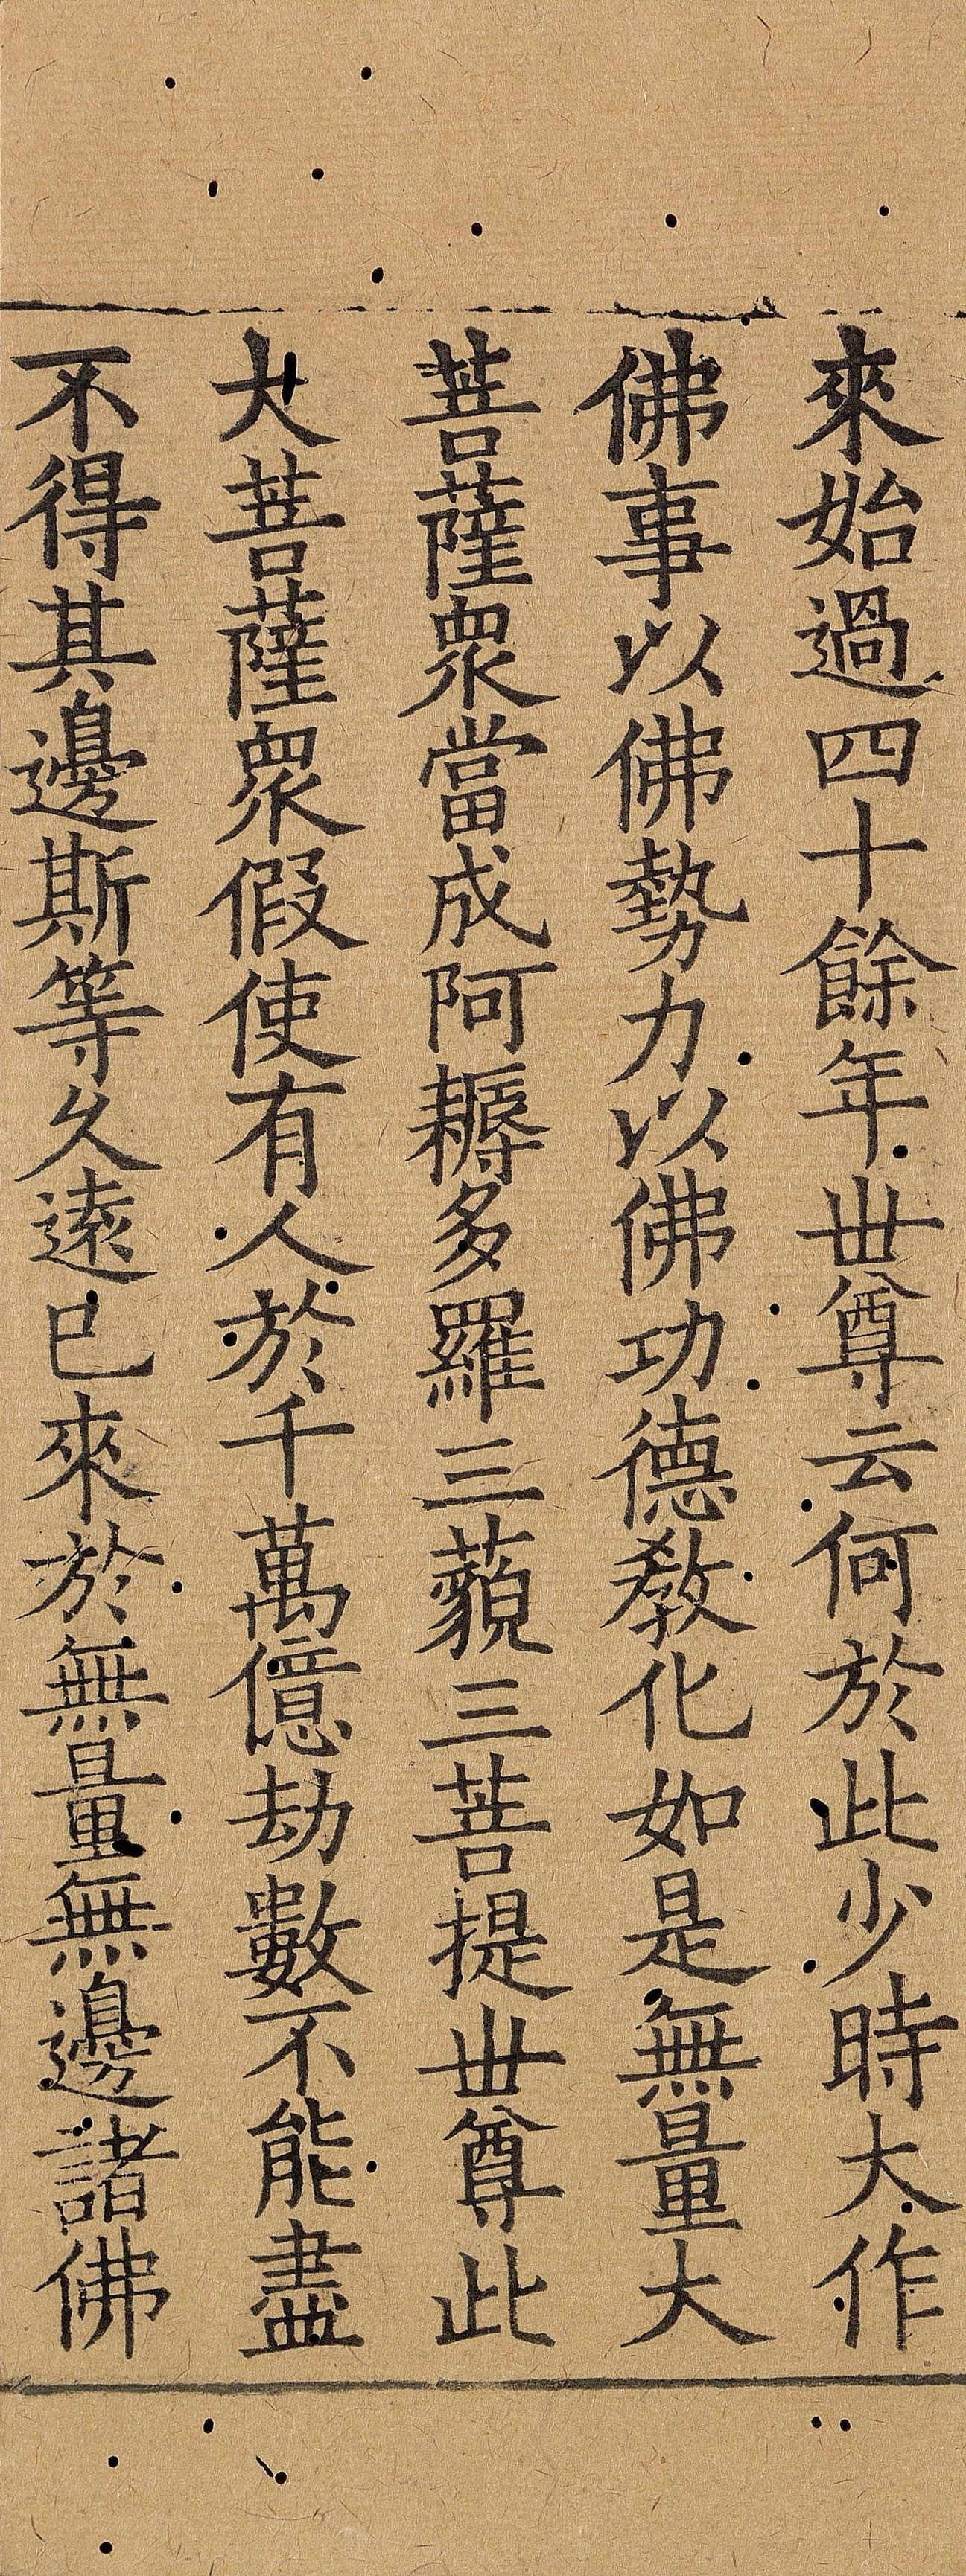 來始過四十餘年世尊云何於此少時大作
佛事以佛勢力以佛功德教化如是無量大
菩薩衆當成阿耨多羅三藐三菩提世尊此
大菩薩衆假使有人於千萬億劫數不能盡
不得其邊斯等久遠已來於無量無邊諸佛